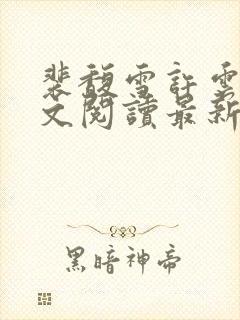 裴馥雪許雲
文閱讀最新
黑暗神帝